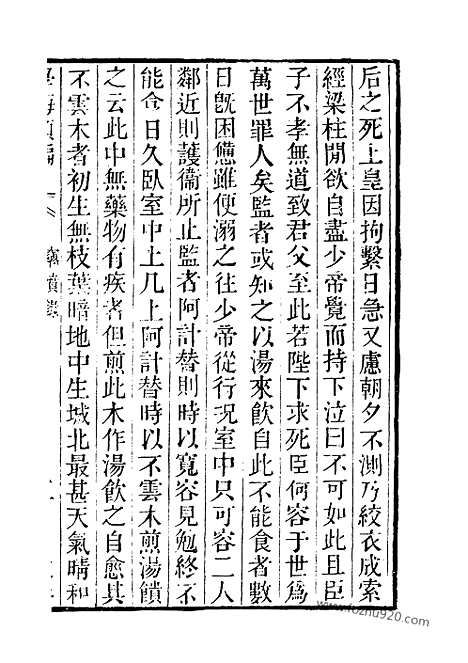 后之死上皇因拘繫日急又慮朝夕不測乃絞衣成索
經梁柱間欲自盡少帝覺而持下泣曰不可如此且臣
子不孝無道致君父至此若陛下求死臣何容于世爲
萬世罪人矣監者或知之以湯來飲自此不能食者數
日旣困憊雖便溺之往少帝從行况室中只可容二人
鄰近則護衞所止監者阿計替則時以寬容見勉終不
能食日久臥室中土几上阿計替時以不雲木煎湯饋
之云此中無藥物有疾者但煎此木作湯飲之自愈其
不雲木者初生無枝葉暗地中生城北最甚天氣晴和
學海類編
竊憤錄
www.fozhu920.com